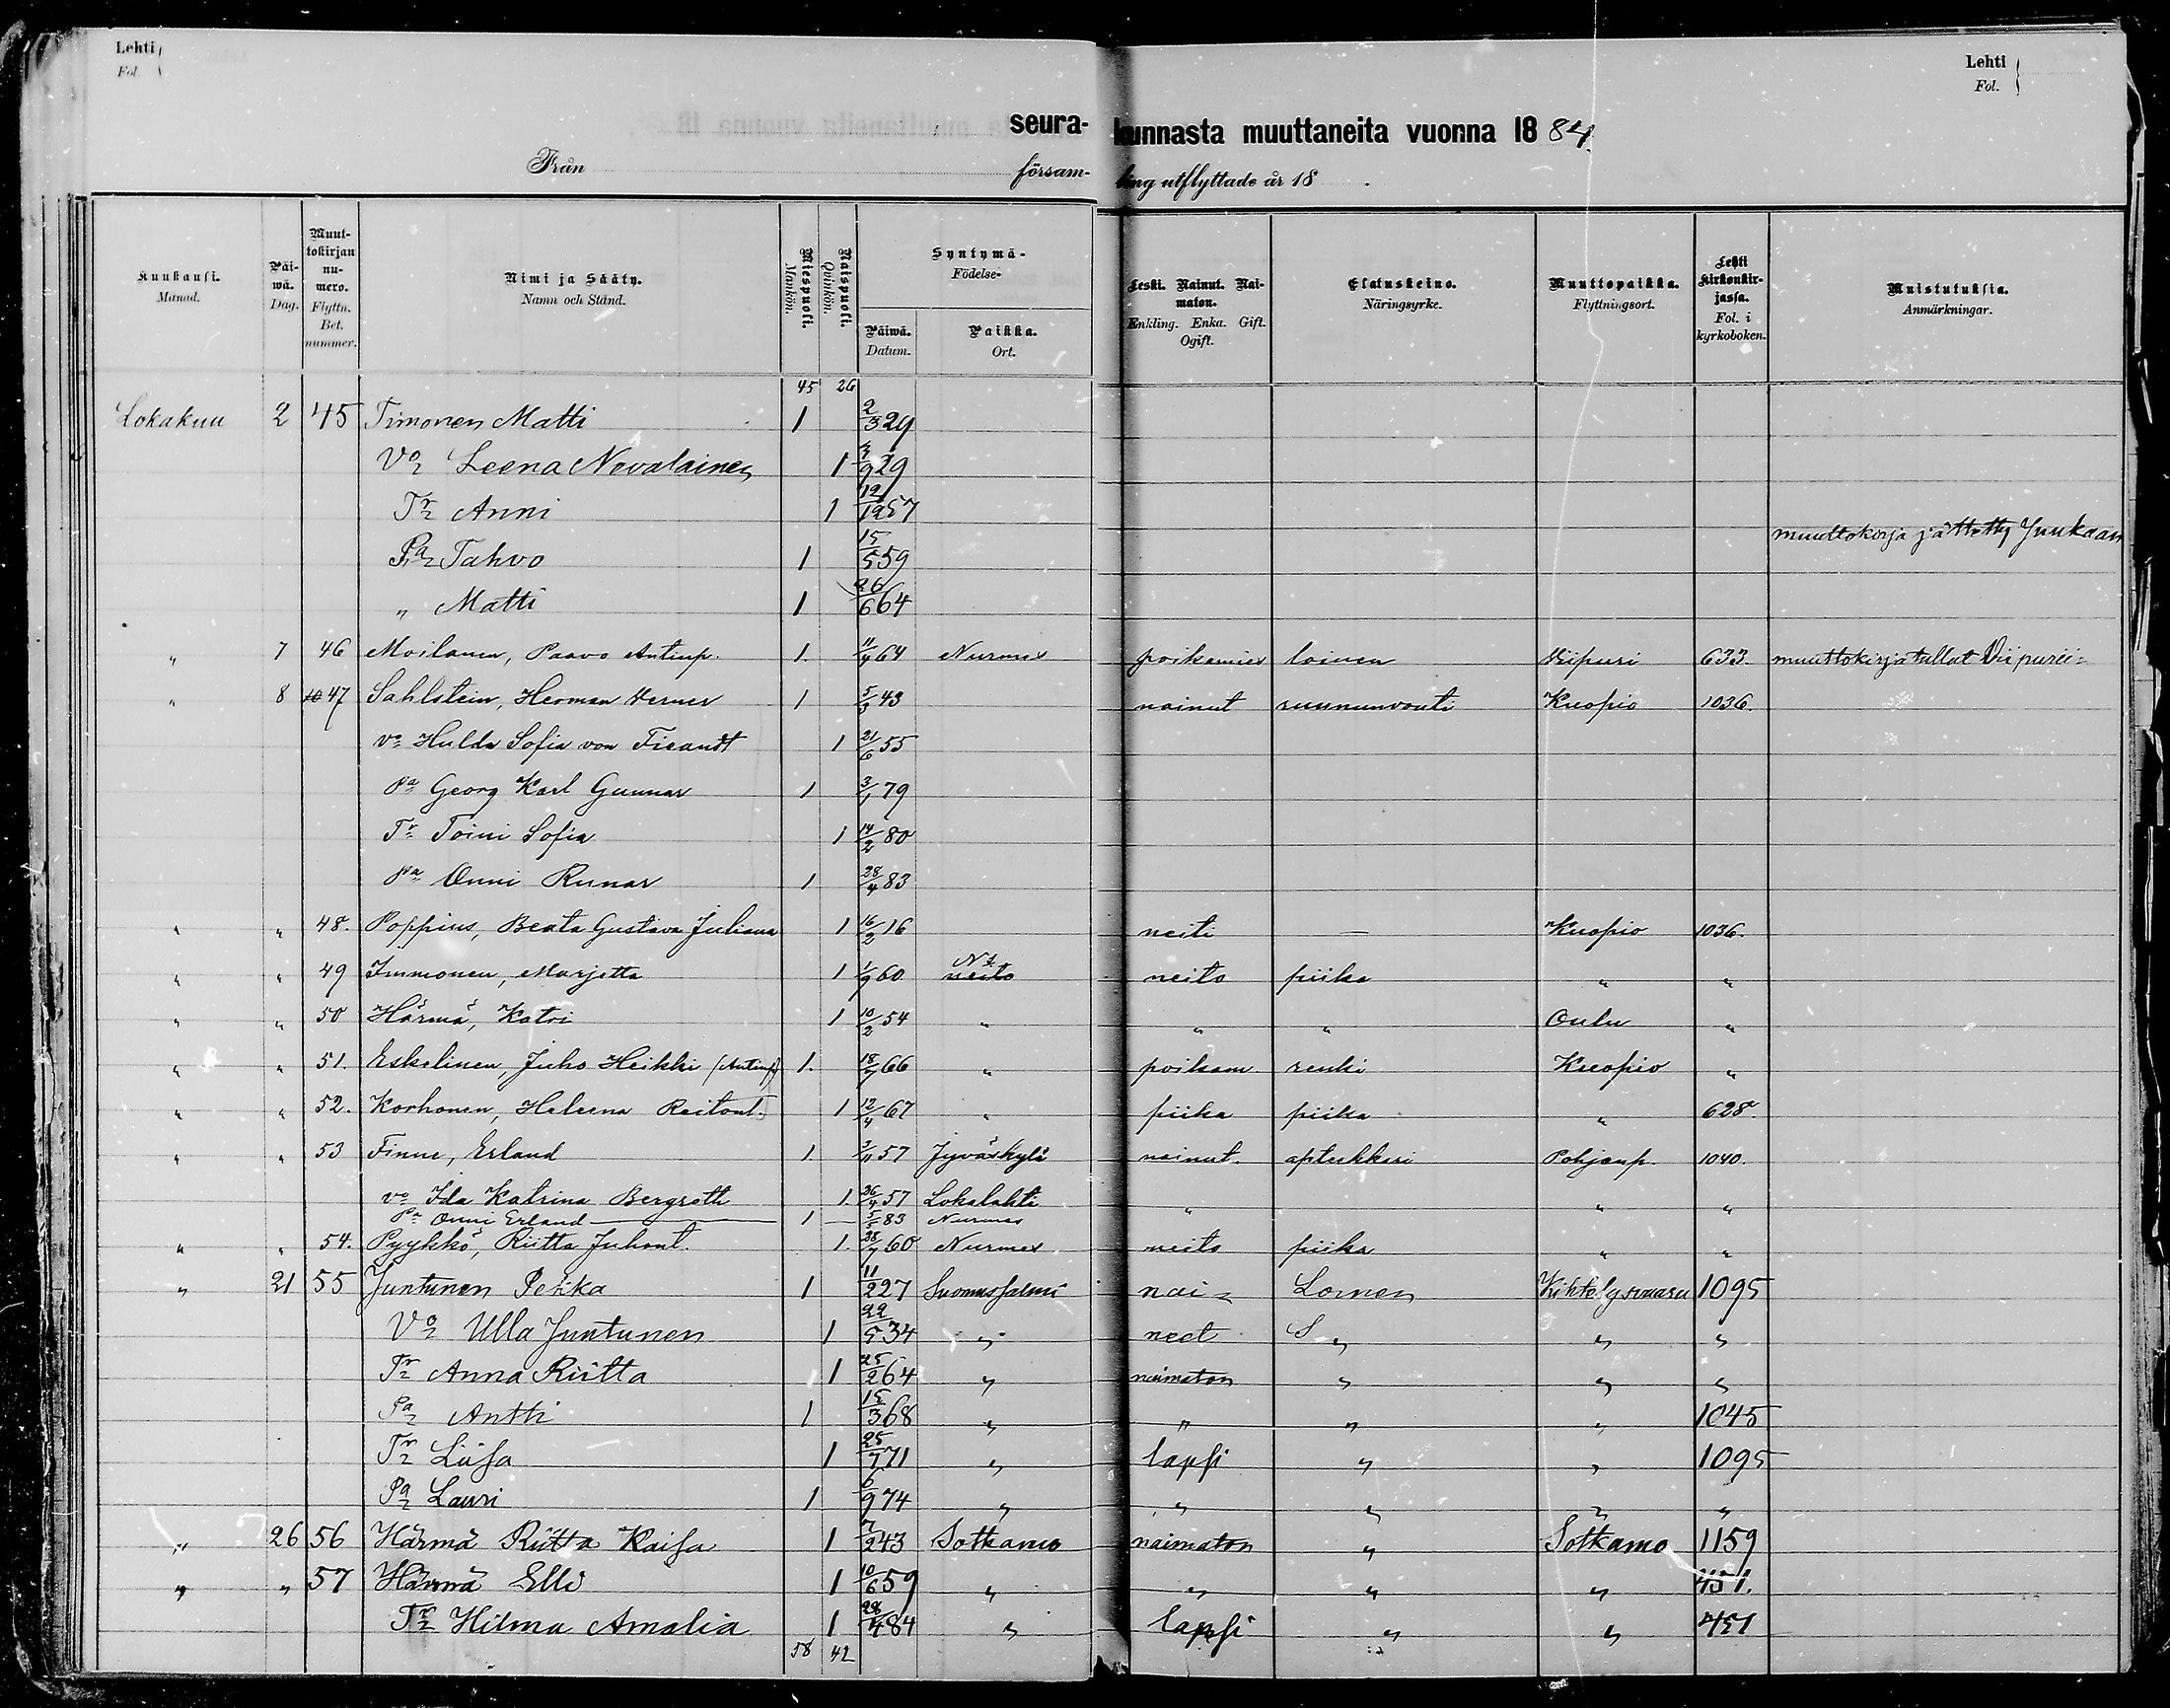 Lehti
Fol.
Lehti
Fol.
seurakunnasta muuttaneita vuonna 1884.
Från församling utflyttade år 18 .
Kuukausi. Månad. Päiwä. Dag. Muuttokirjan numero. Flyttn. Bet. nummer. Nimi ja Sääty. Namn och Stånd. Miespuoli. Mankön. Naispuoli. Qvinkön. Syntymä- Födelse- Päiwä. Datum. Paikka. Ort. Leski. Nainut. Naimaton. Enkling. Enka. Gift. Ogift. Elatuskeino. Näringsyrke. Muuttopaikka. Flyttningsort. Lehti kirkonkirjassa. Fol. i kyrkoboken. Muistutuksia. Anmärkningar.
45 26
Lokakuu 2 45 Timonen Matti 1 2/3 29
Vo Leena Nevalainen 1 9 29
Tr Anni 1 12/12 57
Pa Tahvo 1 15/5 59 muuttokirja jätetty Juukaan
" Matti 1 26/6 64
" 7 46 Moilanen, Paavo Antinp. 1. 11/4 64 Nurmes poikamies loinen Viipuri 633. muuttokirja tullut Viipurii=
" 8 47 Sahlstein, Herman Verner 1 5/3 43 nainut ruununvouti Kuopio 1036.
Vo Hulda Sofia von Fieandt 1 21/6 55
Pa Georg Karl Gunnar 1 3/1 79
Tr Toini Sofia 1 14/2 80
Pa Onni Runar 1 28/4 83
" " 48. Poppius, Beata Gustava Juliana 1 16/2 16 neiti — Kuopio 1036.
" " 49 Immonen, Marjetta 1 1/9 60 neito piika " "
" " 50 Härmä, Katri 1 10/2 54 " " " Oulu "
" " 51. Eskelinen, Juho Heikki (Antinp) 1. 18/7 66 " poikam renki Kuopio "
" " 52. Korhonen, Heleena Reitont. 1 12/4 67 " piika piika " 628.
" " 53 Finne, Erland 1. 3/11 57 Jyväskylä nainut. aptekkari Pohjanp. 1040.
vo Ida Katrina Bergroth 1. 26/4 57 Lokalahti " " "
Pa Onni Erland 1 5/5 83 Nurmes
" " 54. Pyykkö, Riitta Juhont. 1. 28/7 60 Nurmes neito piika " "
" 21 55 Juntunen Pekka 1 11/2 27 Suomussalmi nai= Loinen Kihtelysvaara 1095
Vo Ulla Juntunen 1 22/5 34 " neet S " " "
Tr Anna Riitta 1 25/2 64 " naimaton " " "
Pa Antti 1 15/3 68 " " " " 1045
Tr Liisa 1 25/7 71 " lapsi " " 1095
Pa Lauri 1 6/9 74 " " " " "
" 26 56 Härmä Riitta Kaisa 1 7/2 43 Sotkamo naimaton " Sotkamo 1159
" " 57 Härmä Elli 1 10/6 59 " " " " 451.
Tr Hilma Amalia 1 28/4 84 " lapsi " " 451
58 42